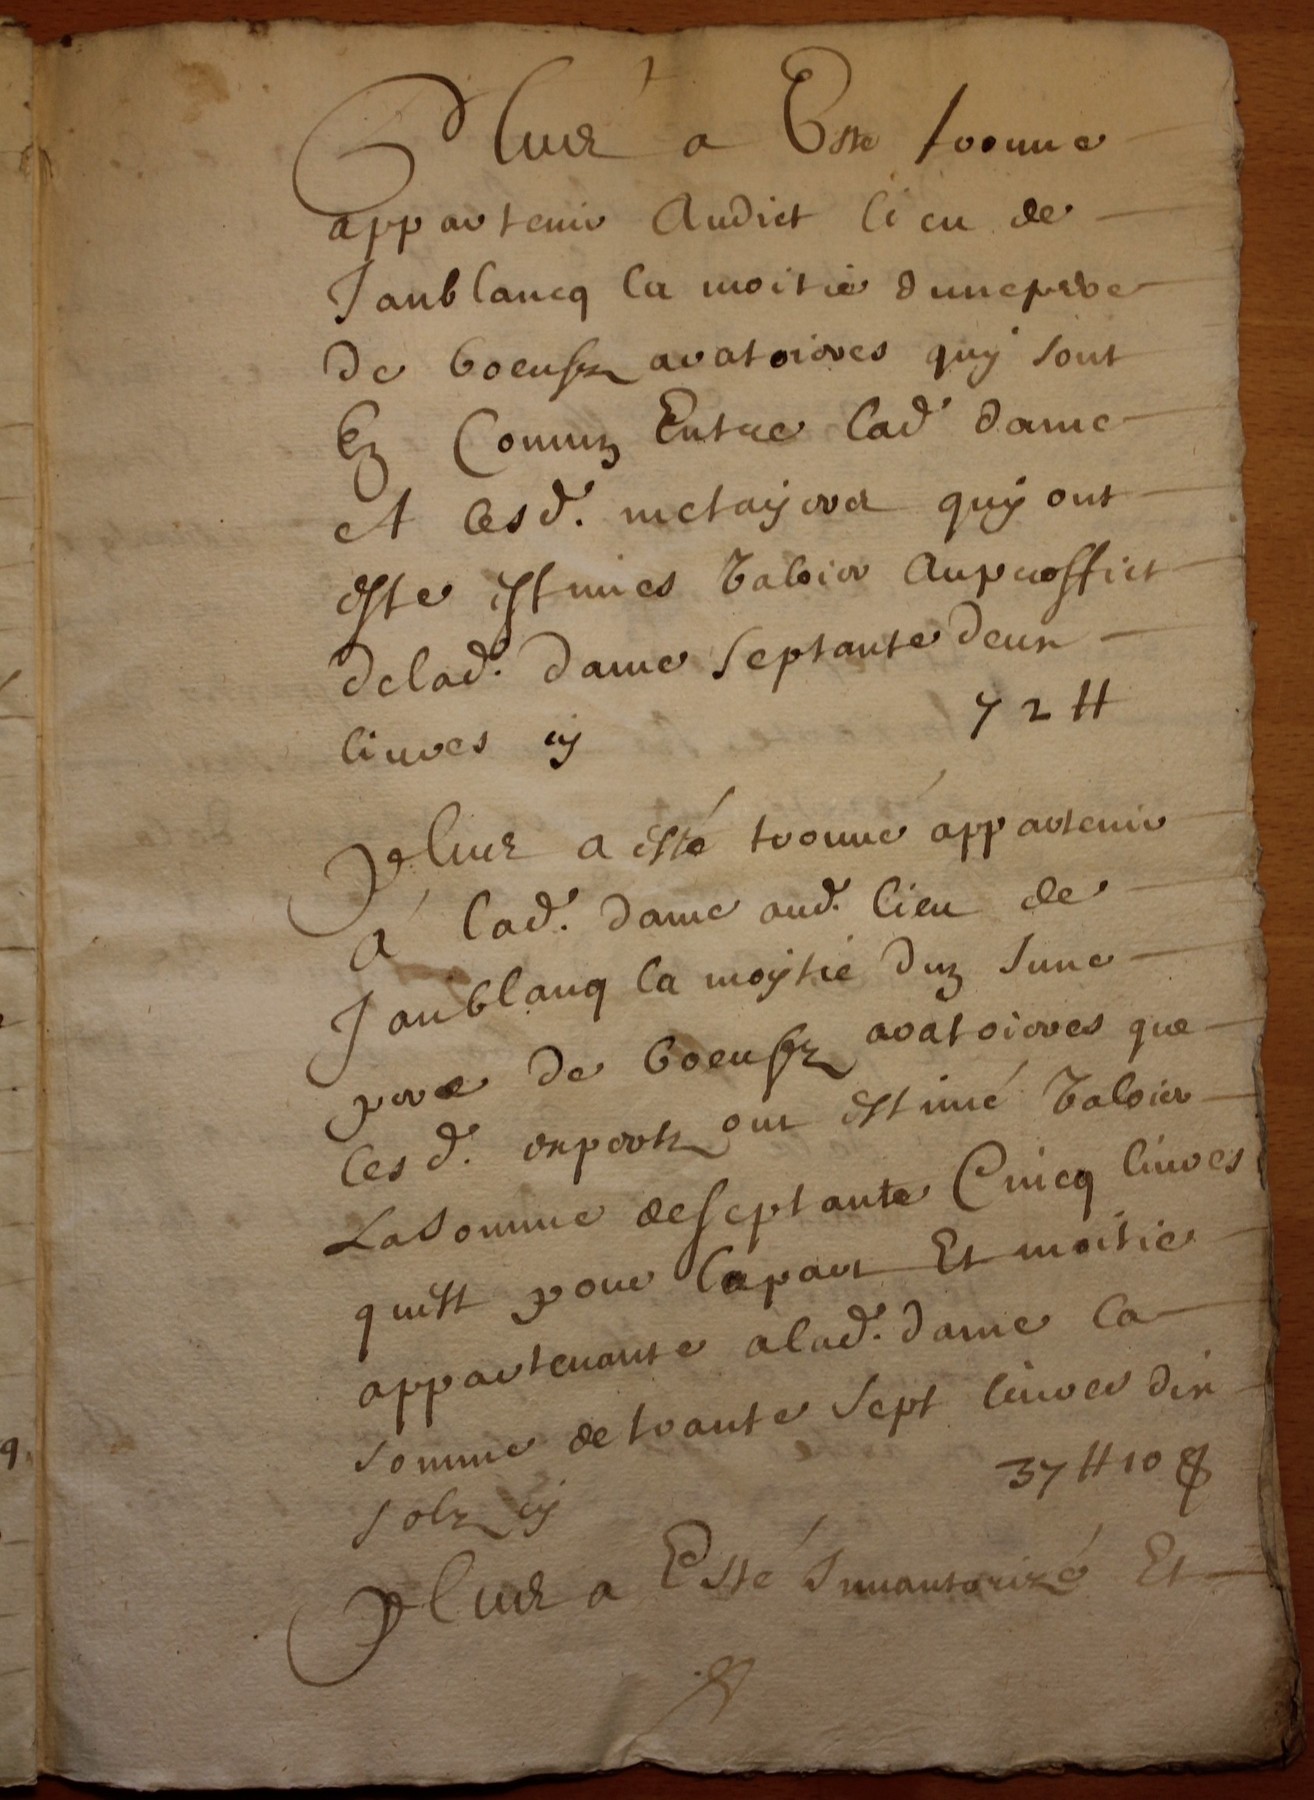 Plus a Este trouue
appartenir Audict lieu de
Janblancq la moitié dune pere
de boeufz aratoires quy sont
En Commun Entre lad. dame
et lesd. metayers quy ont
este estimes Valoir Auproffict
delad. dame septante deux
liures cy 72 ₶
Plus a esté trouué appartenir
à lad. dame aud. lieu de
Janblanq la moytié dun June
pere de boeufz aratoires que
lesd. expertz ont estimé Valoir
La somme de septante Cincq liures
quest pour la part Et moitie
appartenante a lad. dame la
somme de trante sept liures dix
solz cy 37 ₶ 10 s
Plus a Esté Inuantorizé Et